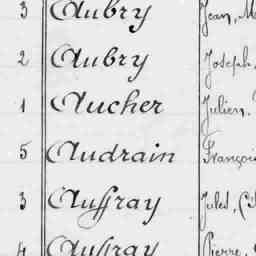 3 Aubry Jean, M
2 Aubry Joseph,
1 Aucher Julien.
5 Audrain Françoi
3 Auffray Jules,
4 Auffray Pierre,